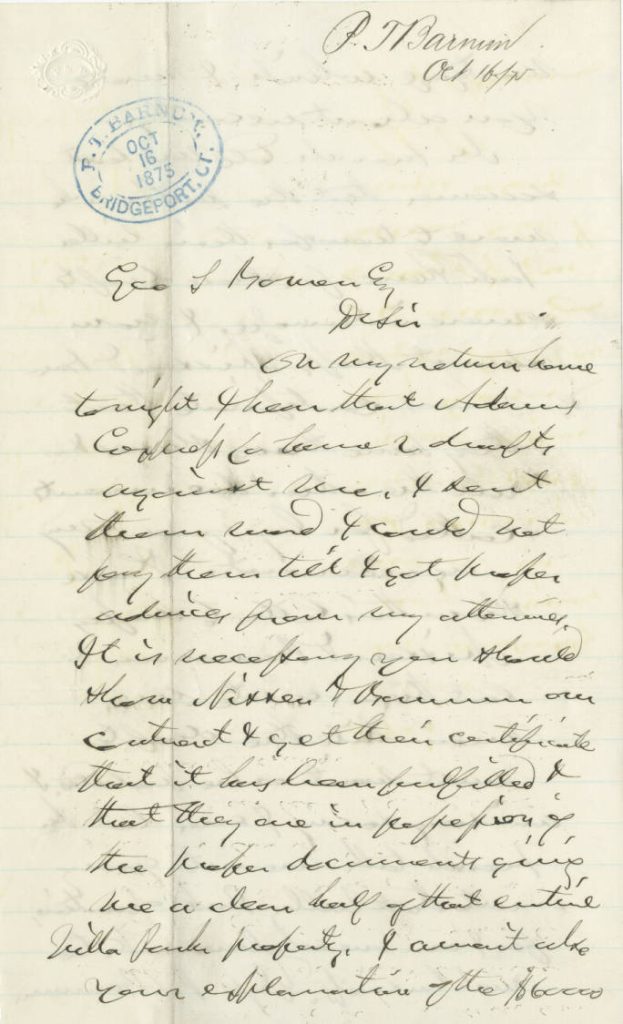 P. T. Barnum
Oct 16/75
P. T. BARNUM,
OCT
16
1875
BRIDGEPORT, CT.
Geo S Bowen Esq
D Sir
On my return home
tonight I hear that Adams
Express Co have 2 drafts
against me, I sent
them word I could not
pay them till I got proper
advices from my attornies.
It is necessary you should
show Nissen & Barnum our
contract & get their certificate
that it has been fulfilled &
that they are in possession of
the proper documents giving
me a clean half of that entire
Villa Park property. I await also
your explanation of the $6000